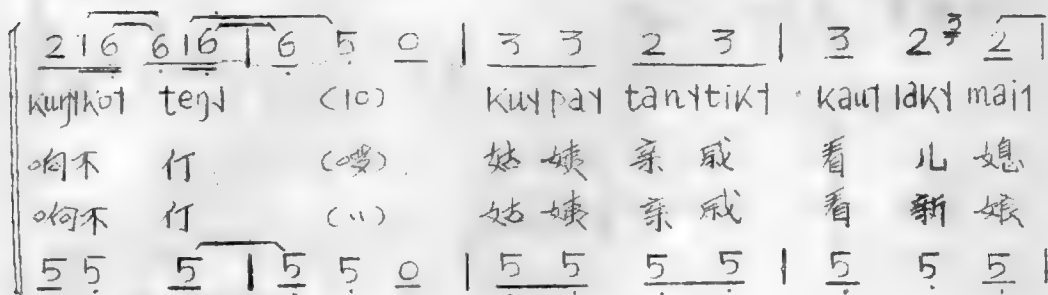 2 1 6 6 1 6 | 6 5 0 | 3 3 2 3 | 3 2 3 2 |
kuŋ˧ko˥ teŋ˨ (lo) kuɣ˨pa˨ tan˨tik˥ kau˥ lak˨ mai˥
响不 仃 (啰) 姑 姨 亲 戚 看 儿 媳
响不 仃 (〃) 姑 姨 亲 戚 看 新 娘
5 5 5 | 5 5 0 | 5 5 5 5 | 5 5 5 |